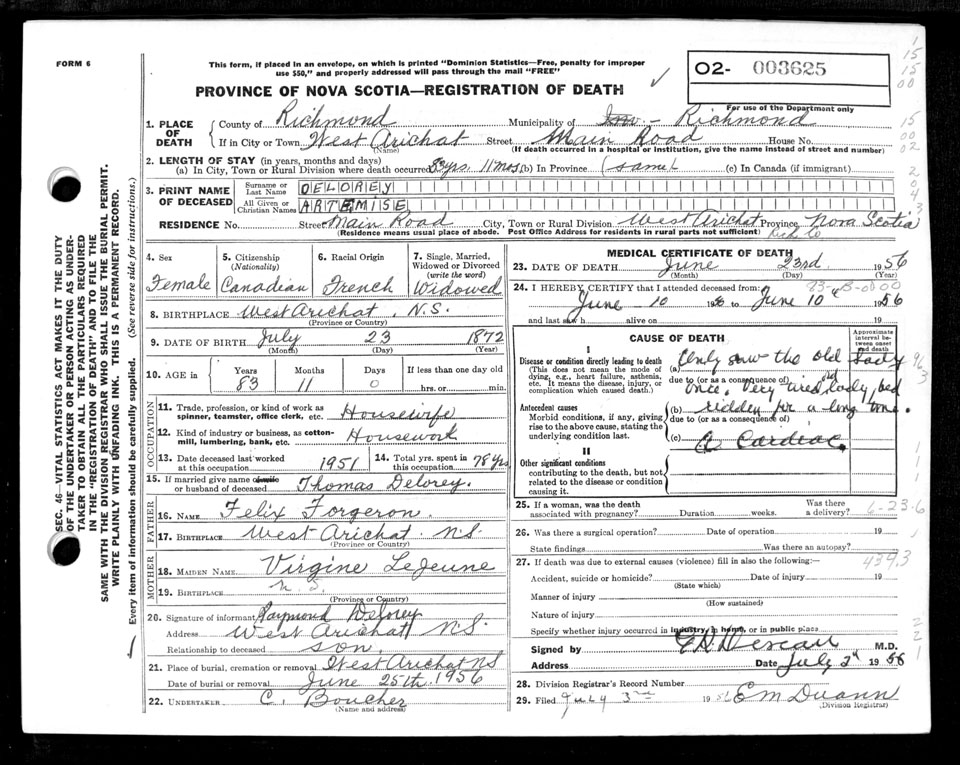 FORM 6
This form, if placed in an envelope, on which is printed "Dominion Statistics—Free, penalty for improper
use $50," and properly addressed will pass through the mail "FREE"
O2- 003625
PROVINCE OF NOVA SCOTIA—REGISTRATION OF DEATH
For use of the Department only
1. PLACE OF DEATH County of Richmond Municipality of Richmond
If in City or Town West Arichat (Name) Street Main Road House No.
(If death occurred in a hospital or institution, give the name instead of street and number)
2. LENGTH OF STAY (in years, months and days)
(a) In City, Town or Rural Division where death occurred 83 yrs. 11 mos. (b) In Province (same) (c) In Canada (if immigrant)
3. PRINT NAME OF DECEASED Surname or Last Name DELOREY
All Given or Christian Names ARTEMISE
RESIDENCE No. Street Main Road City, Town or Rural Division West Arichat Province Nova Scotia
(Residence means usual place of abode. Post Office Address for residents in rural parts not sufficient) Rich Co
4. Sex Female
5. Citizenship (Nationality) Canadian
6. Racial Origin French
7. Single, Married, Widowed or Divorced (write the word) Widowed
8. BIRTHPLACE West Arichat, N.S.
(Province or Country)
9. DATE OF BIRTH July 23 1872
(Month) (Day) (Year)
10. AGE in Years 83 Months 11 Days 0 If less than one day old hrs. or min.
OCCUPATION
11. Trade, profession, or kind of work as spinner, teamster, office clerk, etc. Housewife
12. Kind of industry or business, as cotton-mill, lumbering, bank, etc. Housework
13. Date deceased last worked at this occupation 1951
14. Total yrs. spent in this occupation 78 yrs
15. If married give name of wife or husband of deceased Thomas Delorey.
FATHER
16. NAME Felix Forgeron.
17. BIRTHPLACE West Arichat. N.S.
(Province or Country)
MOTHER
18. MAIDEN NAME Virgine LeJeune
19. BIRTHPLACE N.S.
(Province or Country)
20. Signature of informant Raymond Delorey
Address West Arichat N.S.
Relationship to deceased son.
21. Place of burial, cremation or removal West Arichat NS
Date of burial or removal June 25th, 1956
22. UNDERTAKER C. Boucher
(Name and address)
MEDICAL CERTIFICATE OF DEATH
23. DATE OF DEATH June 23rd. 1956
(Month) (Day) (Year)
24. I HEREBY CERTIFY that I attended deceased from:
June 10 1956 to June 10 1956
and last saw h alive on 19
CAUSE OF DEATH
Approximate interval between onset and death
I
Disease or condition directly leading to death
(This does not mean the mode of dying, e.g., heart failure, asthenia, etc. It means the disease, injury, or complication which caused death.)
(a) Only saw the old lady
due to (or as a consequence of)
once. Very tired old lady, bed
Antecedent causes
Morbid conditions, if any, giving rise to the above cause, stating the underlying condition last.
(b) ridden for a long time.
due to (or as a consequence of)
(c) A Cardiac.
II
Other significant conditions
contributing to the death, but not related to the disease or condition causing it.
25. If a woman, was the death associated with pregnancy? Duration weeks. Was there a delivery? 6-23-6
26. Was there a surgical operation? Date of operation 19
State findings Was there an autopsy?
27. If death was due to external causes (violence) fill in also the following:
Accident, suicide or homicide? Date of injury 19
(State which)
Manner of injury
(How sustained)
Nature of injury
Specify whether injury occurred in industry, in home, or in public place
Signed by M.D.
Address Date July 2nd 1956
28. Division Registrar's Record Number
29. Filed July 3rd 1956 E M Duann
(Division Registrar)
SEC. 46—VITAL STATISTICS ACT MAKES IT THE DUTY
OF THE UNDERTAKER OR PERSON ACTING AS UNDER-
TAKER TO OBTAIN ALL THE PARTICULARS REQUIRED
IN THE "REGISTRATION OF DEATH" AND TO FILE THE
SAME WITH THE DIVISION REGISTRAR WHO SHALL ISSUE THE BURIAL PERMIT.
WRITE PLAINLY WITH UNFADING INK. THIS IS A PERMANENT RECORD.
Every item of information should be carefully supplied. (See reverse side for instructions.)